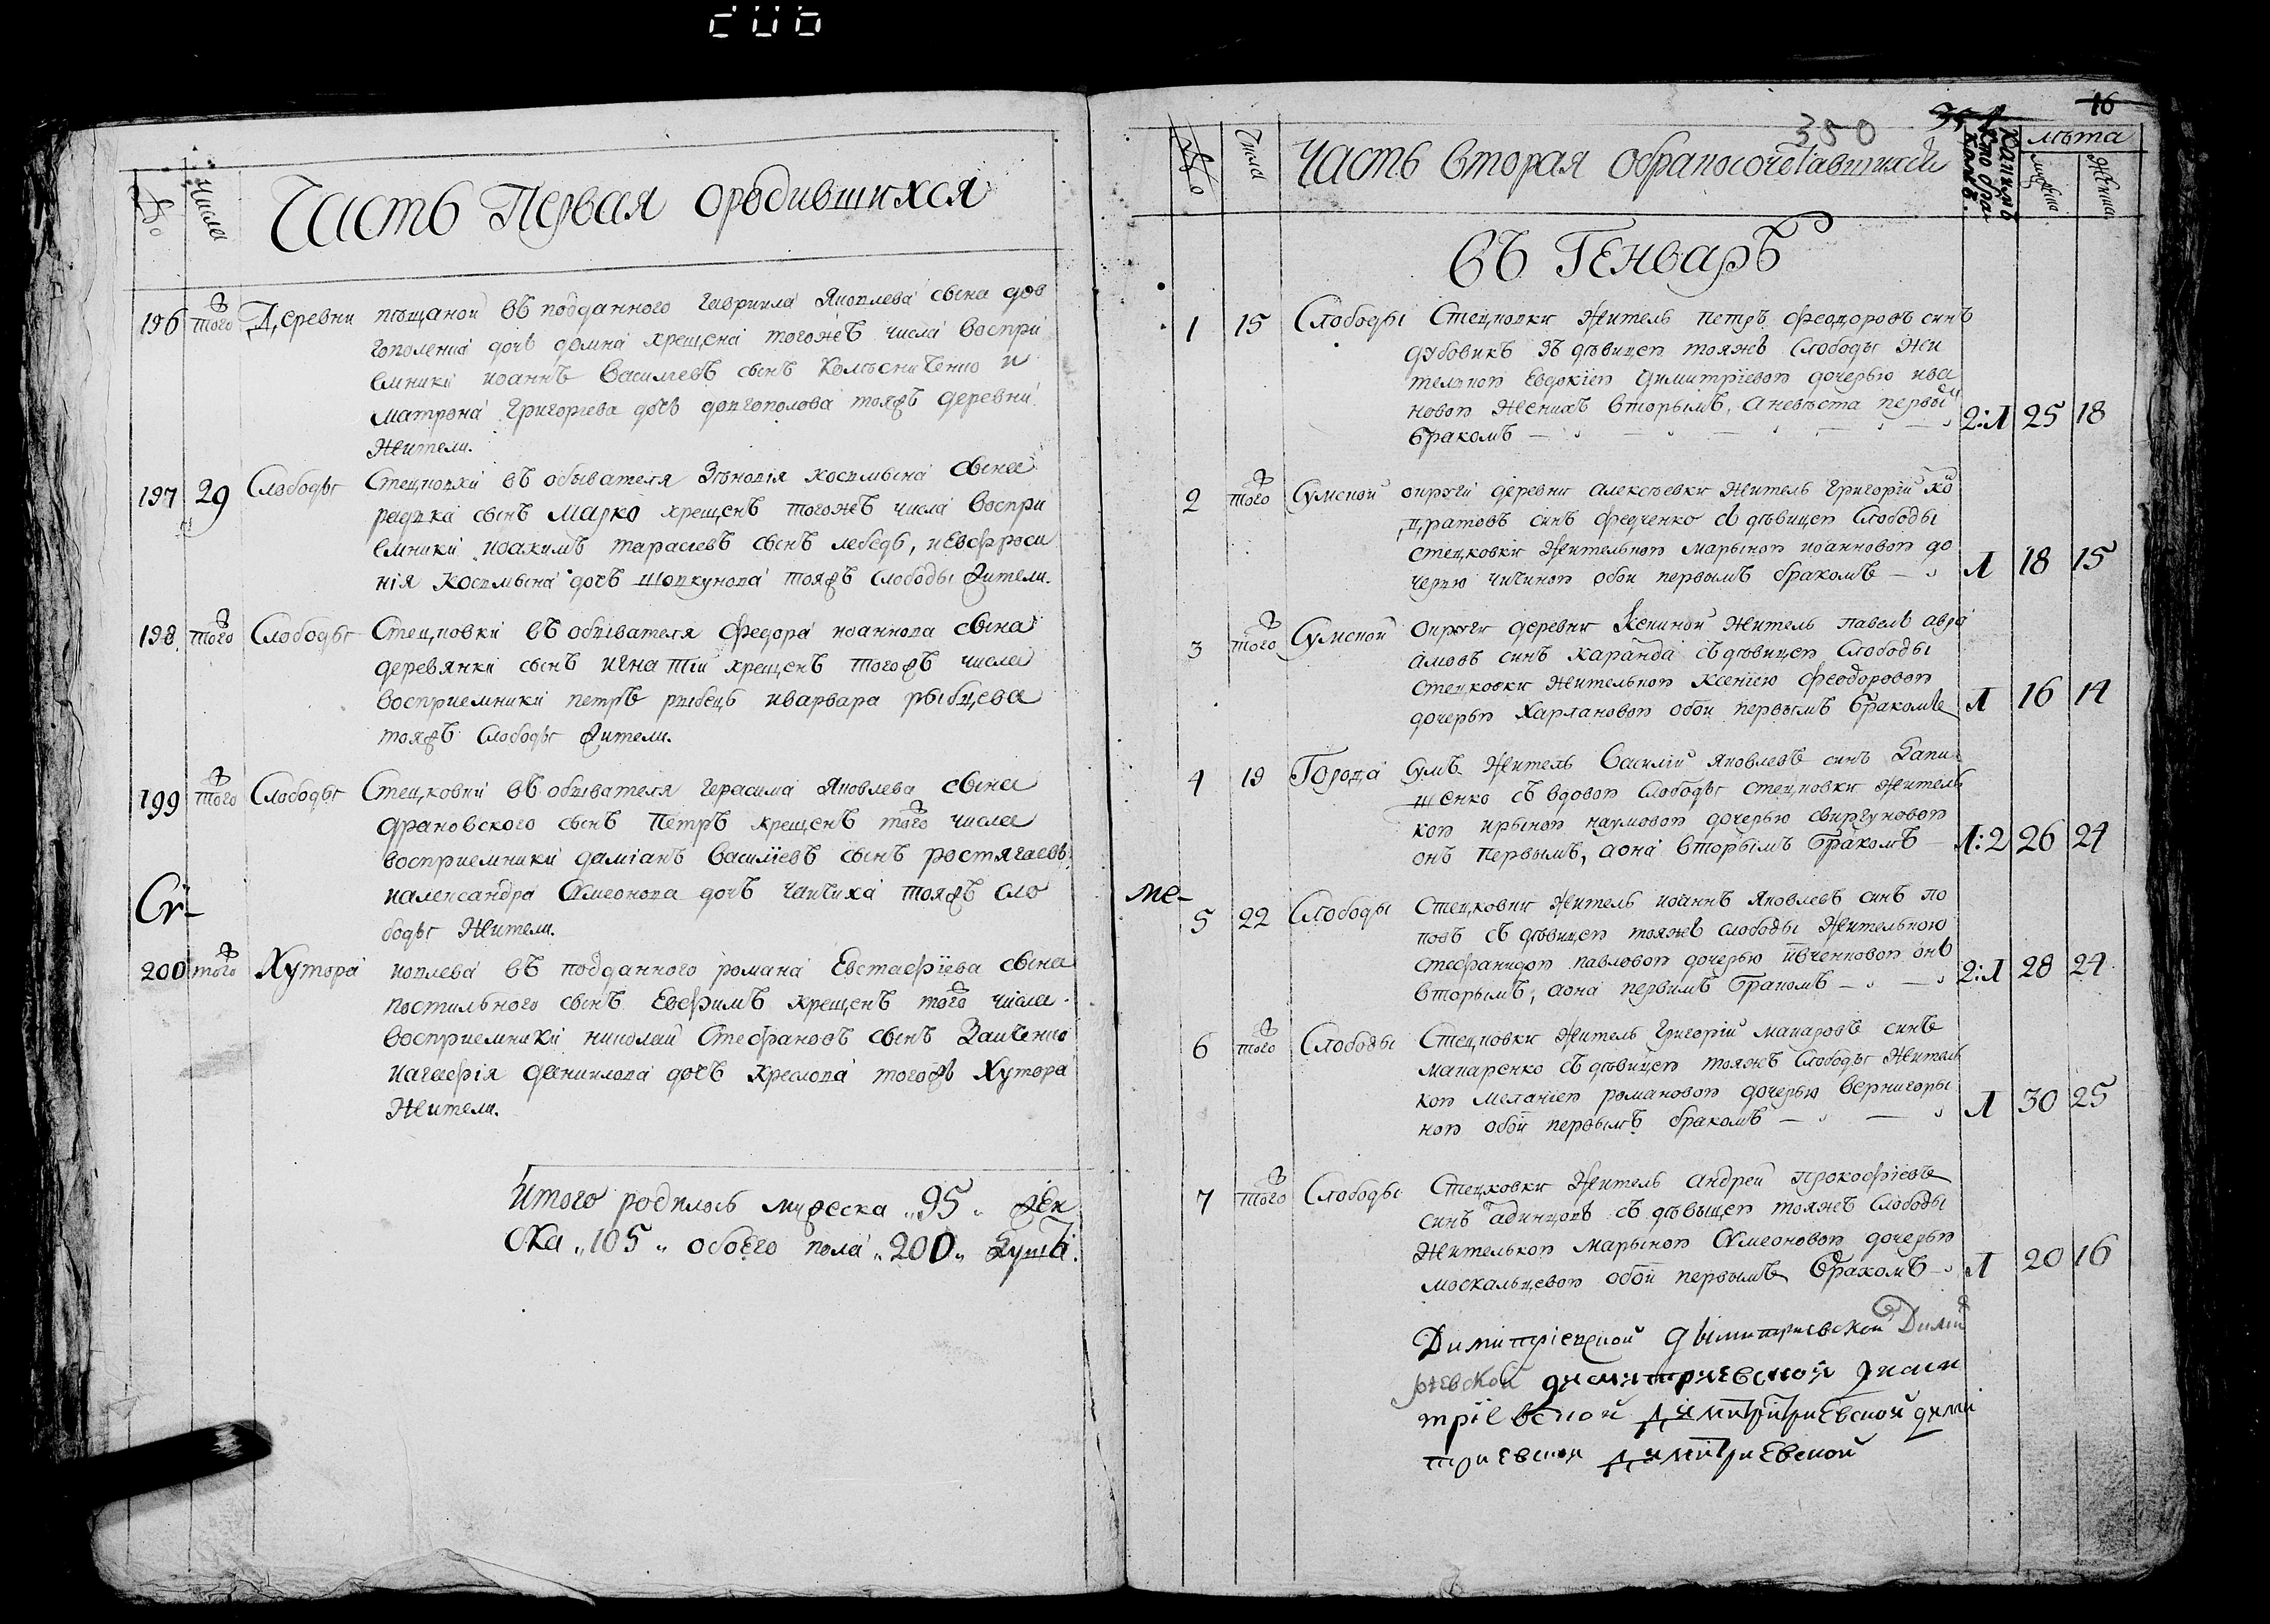 Часть Первая ородившихся
№
Числа
196 того Деревни пѣщаной въ подданного Гавриила Яковлева сына дов
гополенка дочь домна крещена тогожъ числа воспри
емники иоаннъ Василіевъ сынъ Колѣсниченко и
матрона Григоріева дочь долгополова тояжъ деревни
Жители.
197 29 Слободы Стецковки въ обывателя Зѣновія космына сына
радька сынъ Марко крещенъ тогожъ числа воспри
емники иоакимъ тарасіевъ сынъ лебедь, иЕвфроси
нія Космына дочь тояжъ Слободы жители.
198 того Слободы Стецковки въ обывателя Федора иоаннова сына
деревянки сынъ игнатій крещенъ тогожъ числа
восприемники петръ рыбецъ иварвара рыбцева
тояжъ Слободы жители.
199 того Слободы Стецковки въ обывателя герасима Яковлева сына
драновского сынъ Петръ крещенъ того числа
восприемники даміанъ Василіевъ сынъ ростягаевъ
иалександра Симеонова дочь чайчиха тояжъ сло
боды Жители.
200 того Хутора иовлева въ подданного романа Евстафіева сына
постильного сынъ Евфимъ крещенъ того числа
восприемники николай Стефановъ сынъ Заиченко
иагафія даниилова дочь Креслова тогожъ Хутора
Жители.
Итого родилось мужеска 95 жен
ска 105 обоего пола 200 душъ.
350
16
№
Числа
Часть вторая обракосочетавшихся
лѣта
Въ Генварѣ
1 15 Слободы Стецковки Житель петръ феодоровъ синъ
дубовикъ зъ дѣвицею тояжъ Слободы Жи
телкою Евдокіею Димитріевою дочерью ива
новою Женихъ вторымъ, аневѣста первый
бракомъ 2:1 25 18
2 того Сумской округи деревни алексѣевки Житель григорій ко
дратовъ синъ федченко съ дѣвицею Слободы
стецковки Жителькою марьиною иоанновою до
черью чичиною обои первымъ бракомъ 1 18 15
3 того Сумской округи деревни Кекиной Житель павелъ авра
амовъ синъ каранда съ дѣвицею Слободы
стецковки Жителькою ксеніею феодоровою
дочерью Харлановою обои первымъ бракомъ 1 16 14
4 19 Города Сумъ Житель Василій Яковлевъ синъ Запи
щенко съ вдовою Слободы стецковки Житель
кою ирыною наумовою дочерью свиргуновою
онъ Первымъ, аона вторымъ бракомъ 1:2 26 24
5 22 Слободы Стецковки Житель иоаннъ Яковлевъ синъ по
повъ съ дѣвицею тояжъ слободы Жителькою
стефанидою павловою дочерью ивченковою онъ
вторымъ, аона первимъ бракомъ 2:1 28 24
6 того Слободы Стецковки Житель Григорій макаровъ синъ
макаренко съ дѣвицею тояжъ Слободы Житель
кою меланіею романовою дочерью вернигоры
ною обои первымъ бракомъ 1 30 25
7 того Слободы Стецковки Житель андрей прокофіевъ
синъ адинцовъ съ дѣвицею тояжъ Слободы
Жителькою марьиною Симеоновою дочерью
москальцевою обои первымъ бракомъ 1 20 16
Димитріевской дымитриевской Дими
риевской димитриевской дими
тріевской димитриевской дими
триевской димитриевской